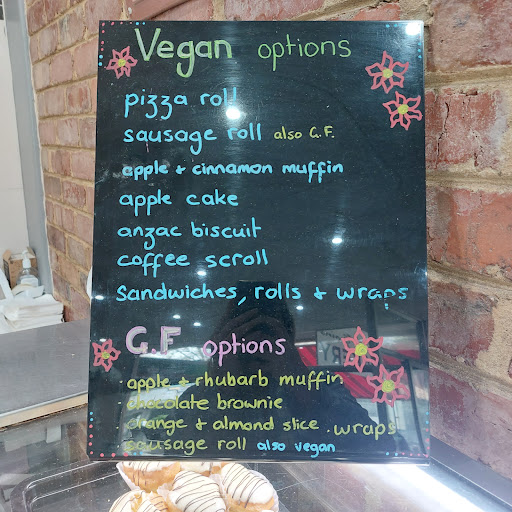 Vegan options
pizza roll
sausage roll also G.F.
apple + cinnamon muffin
apple cake
anzac biscuit
coffee scroll
Sandwiches, rolls + wraps
G.F options
· apple + rhubarb muffin
· chocolate brownie
· orange + almond slice · wraps
· sausage roll also vegan